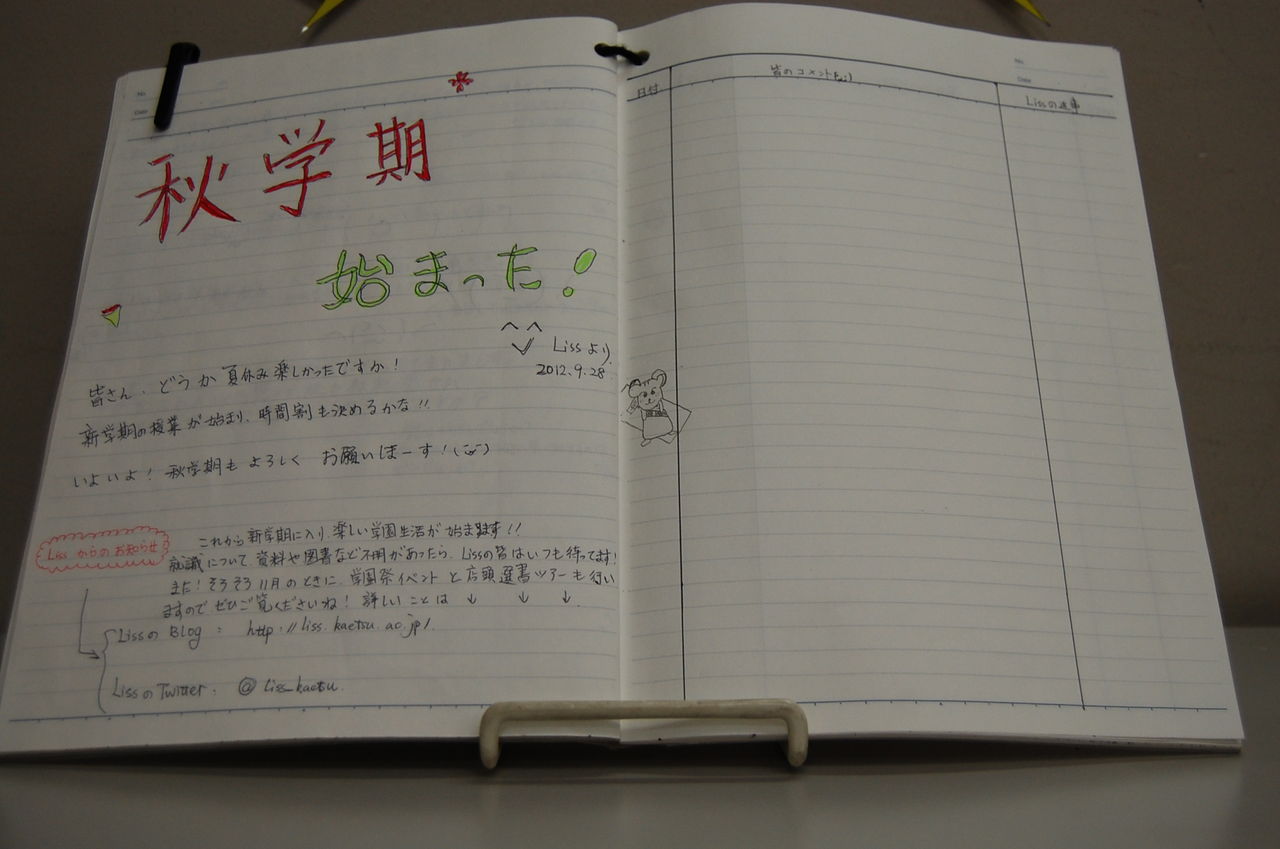 No.
Date
秋学期
始まった!
Lissより
2012.9.28
皆さん、どうか夏休み楽しかったですか!
新学期の授業が始まり、時間割も決めるかな!!
いよいよ!秋学期もよろしく お願いしまーす!
Lissからのお知らせ
これから新学期に入り、楽しい学園生活が始まります!!
就識について、資料や図書など不明があったら、Lissの皆はいつも待ってます!
また!そろそろ11月のときに、学園祭イベントと店頭選書ツアーも行い
ますので ぜひご覧くださいね!詳しいことは ↓ ↓ ↓
LissのBlog : http://liss.kaetsu.ac.jp/
LissのTwitter: @liss_kaetsu
No.
Date
日付
皆のコメント
Lissの返事